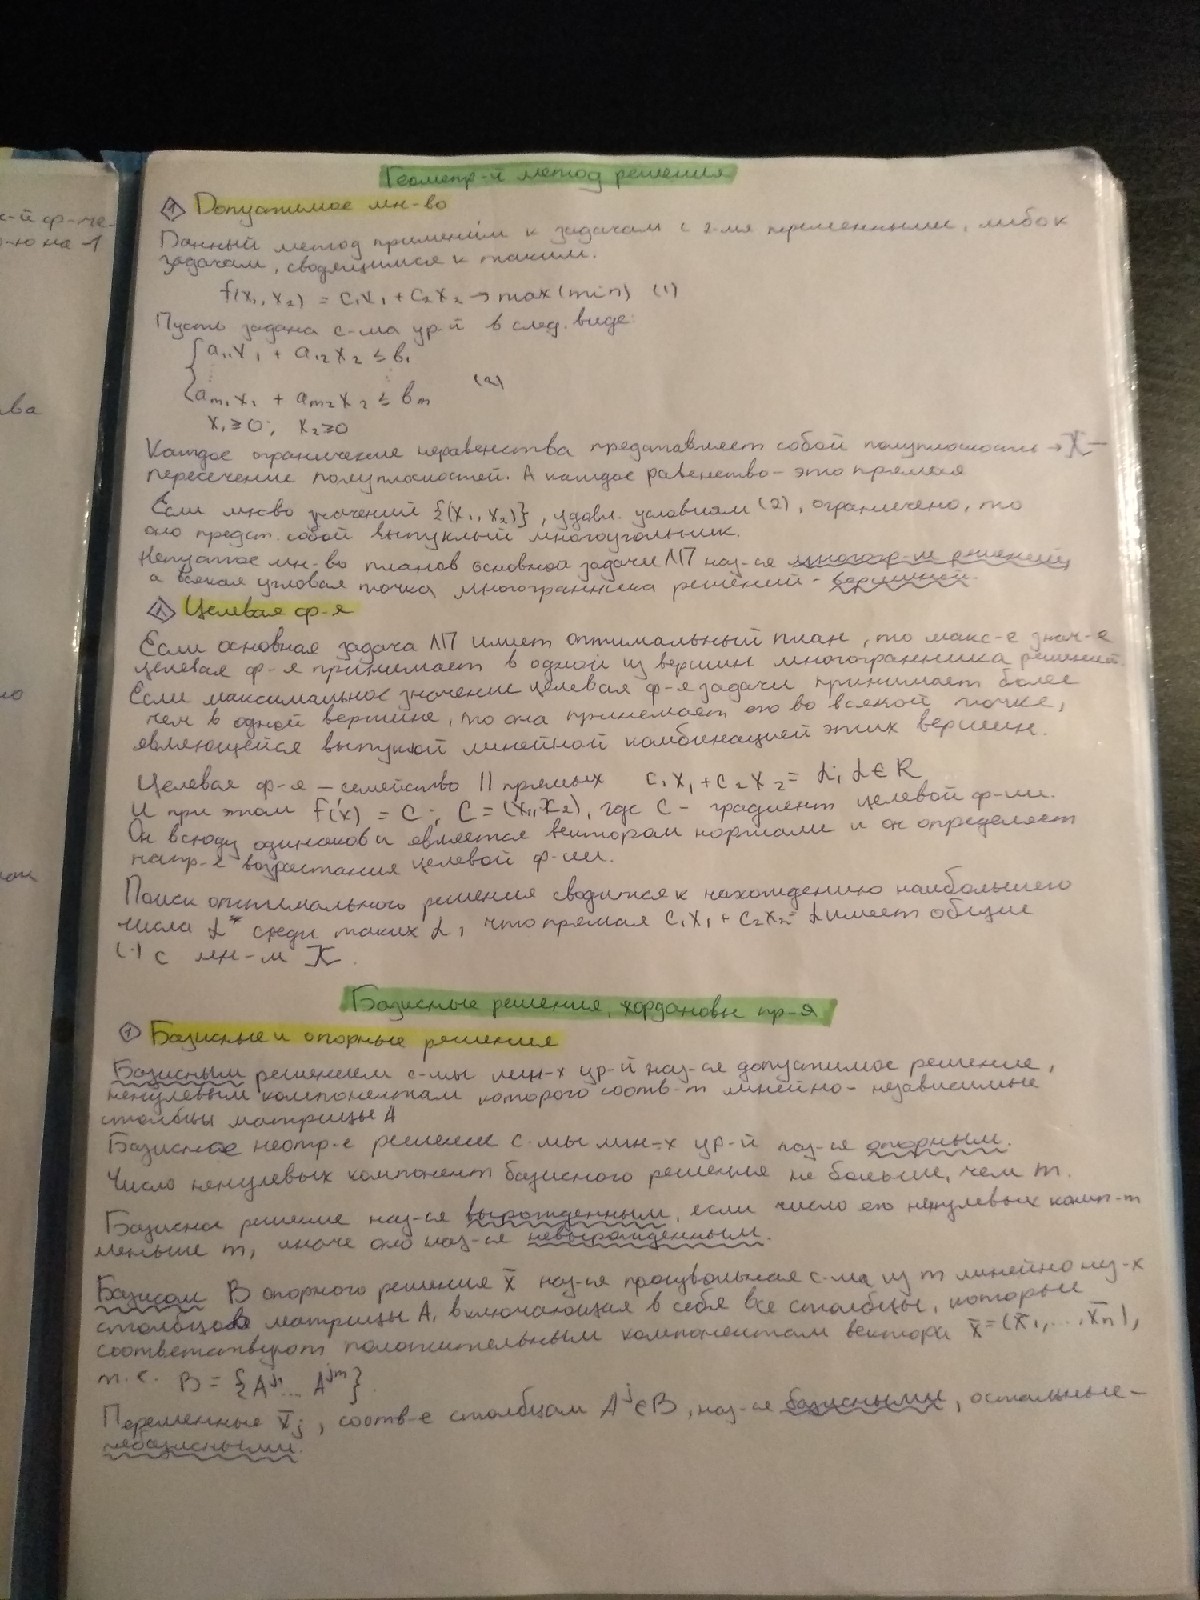 х-й ф-ме
-ю на -1
ва
но
Геометр-й метод решения
1 Допустимое мн-во
Данный метод применим к задачам с 2-мя переменными, либо к
задачам, сводящимся к таким.
f(x₁, x₂) = c₁x₁ + c₂x₂ → max(min) (1)
Пусть задана с-ма ур-й в след. виде:
{ a₁₁x₁ + a₁₂x₂ ≤ b₁
⋮ (2)
aₘ₁x₁ + aₘ₂x₂ ≤ bₘ
x₁ ≥ 0; x₂ ≥ 0
Каждое ограничение неравенства представляет собой полуплоскость → X –
пересечение полуплоскостей. А каждое равенство – это прямая
Если мн-во значений {(x₁, x₂)}, удовл. условиям (2), ограничено, то
оно предст. собой выпуклый многоугольник.
Непустое мн-во планов основной задачи ЛП наз-ся многогр-м решений,
а всякая угловая точка многогранника решений – вершиной.
Целевая ф-я
Если основная задача ЛП имеет оптимальный план, то макс-е знач-е
целевая ф-я принимает в одной из вершин многогранника решений.
Если максимальное значение целевая ф-я задачи принимает более
чем в одной вершине, то она принемает его во всякой точке,
являющейся выпуклой линейной комбинацией этих вершин.
Целевая ф-я – семейство || прямых c₁x₁ + c₂x₂ = α, α ∈ R
И при этом f'(x) = C; C = (x₁, x₂), где C – градиент целевой ф-ии.
Он всюду одинаков и является вектором нормали и он определяет
напр-е возрастания целевой ф-ии.
Поиск оптимального решения сводится к нахождению наибольшего
числа α* среди таких α, что прямая c₁x₁ + c₂x₂ = α имеет общие
(·) с мн-м X.
Базисные решения, жордановы пр-я
1 Базисные и опорные решения
Базисным решением с-мы лин-х ур-й наз-ся допустимое решение,
ненулевым компонентам которого соотв-т линейно-независимые
столбцы матрицы A
Базисное неотр-е решение с-мы лин-х ур-й наз-ся опорным.
Число ненулевых компонент базисного решения не больше, чем m.
Базисное решение наз-ся вырожденным, если число его ненулевых комп-т
меньше m, иначе оно наз-ся невырожденным.
Базисом B опорного решения x̄ наз-ся произвольная с-ма из m линейно нез-х
столбцов матрицы A, включающая в себя все столбцы, которые
соответствуют положительным компонентам вектора x̄ = (x̄₁, ..., x̄ₙ),
т.е. B = {Aʲ¹ ... Aʲᵐ}
Переменные x̄ⱼ, соотв-е столбцам Aʲ ∈ B, наз-ся базисными, остальные –
небазисными.